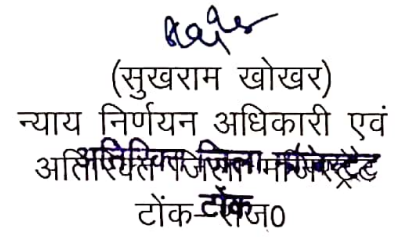 (सुखराम खोखर)
न्याय निर्णयन अधिकारी एवं
अतिरिक्त जिला मजिस्ट्रेट
टोंक-राज0